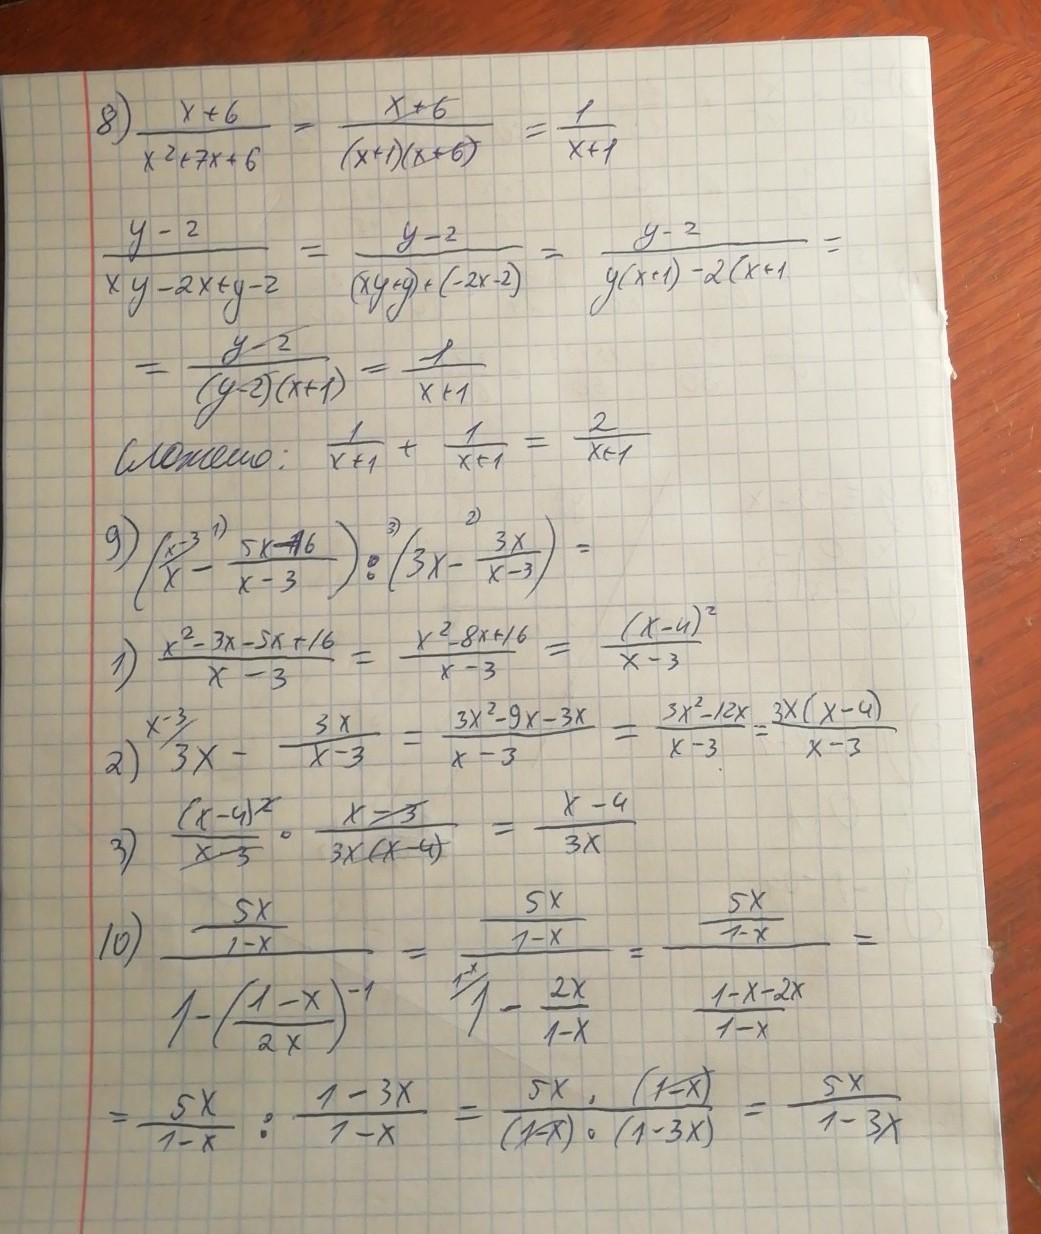 8) (x+6)/(x²+7x+6) = (x+6)/((x+1)(x+6)) = 1/(x+1)
(y-2)/(xy-2x+y-2) = (y-2)/((xy+y)+(-2x-2)) = (y-2)/(y(x+1)-2(x+1) =
= (y-2)/((y-2)(x+1)) = 1/(x+1)
Сложено: 1/(x+1) + 1/(x+1) = 2/(x+1)
9) (x-3/ x - ¹⁾ (5x-16)/(x-3)) : ³⁾ (3x - ²⁾ 3x/(x-3)) =
1) (x²-3x-5x+16)/(x-3) = (x²-8x+16)/(x-3) = (x-4)²/(x-3)
2) x-3/ 3x - 3x/(x-3) = (3x²-9x-3x)/(x-3) = (3x²-12x)/(x-3) = 3x(x-4)/(x-3)
3) (x-4)²/(x-3) · (x-3)/(3x(x-4)) = (x-4)/(3x)
10) (5x/(1-x))/(1-((1-x)/(2x))⁻¹) = (5x/(1-x))/(1-x/ 1 - 2x/(1-x)) = (5x/(1-x))/((1-x-2x)/(1-x)) =
= 5x/(1-x) : (1-3x)/(1-x) = (5x · (1-x))/((1-x) · (1-3x)) = 5x/(1-3x)